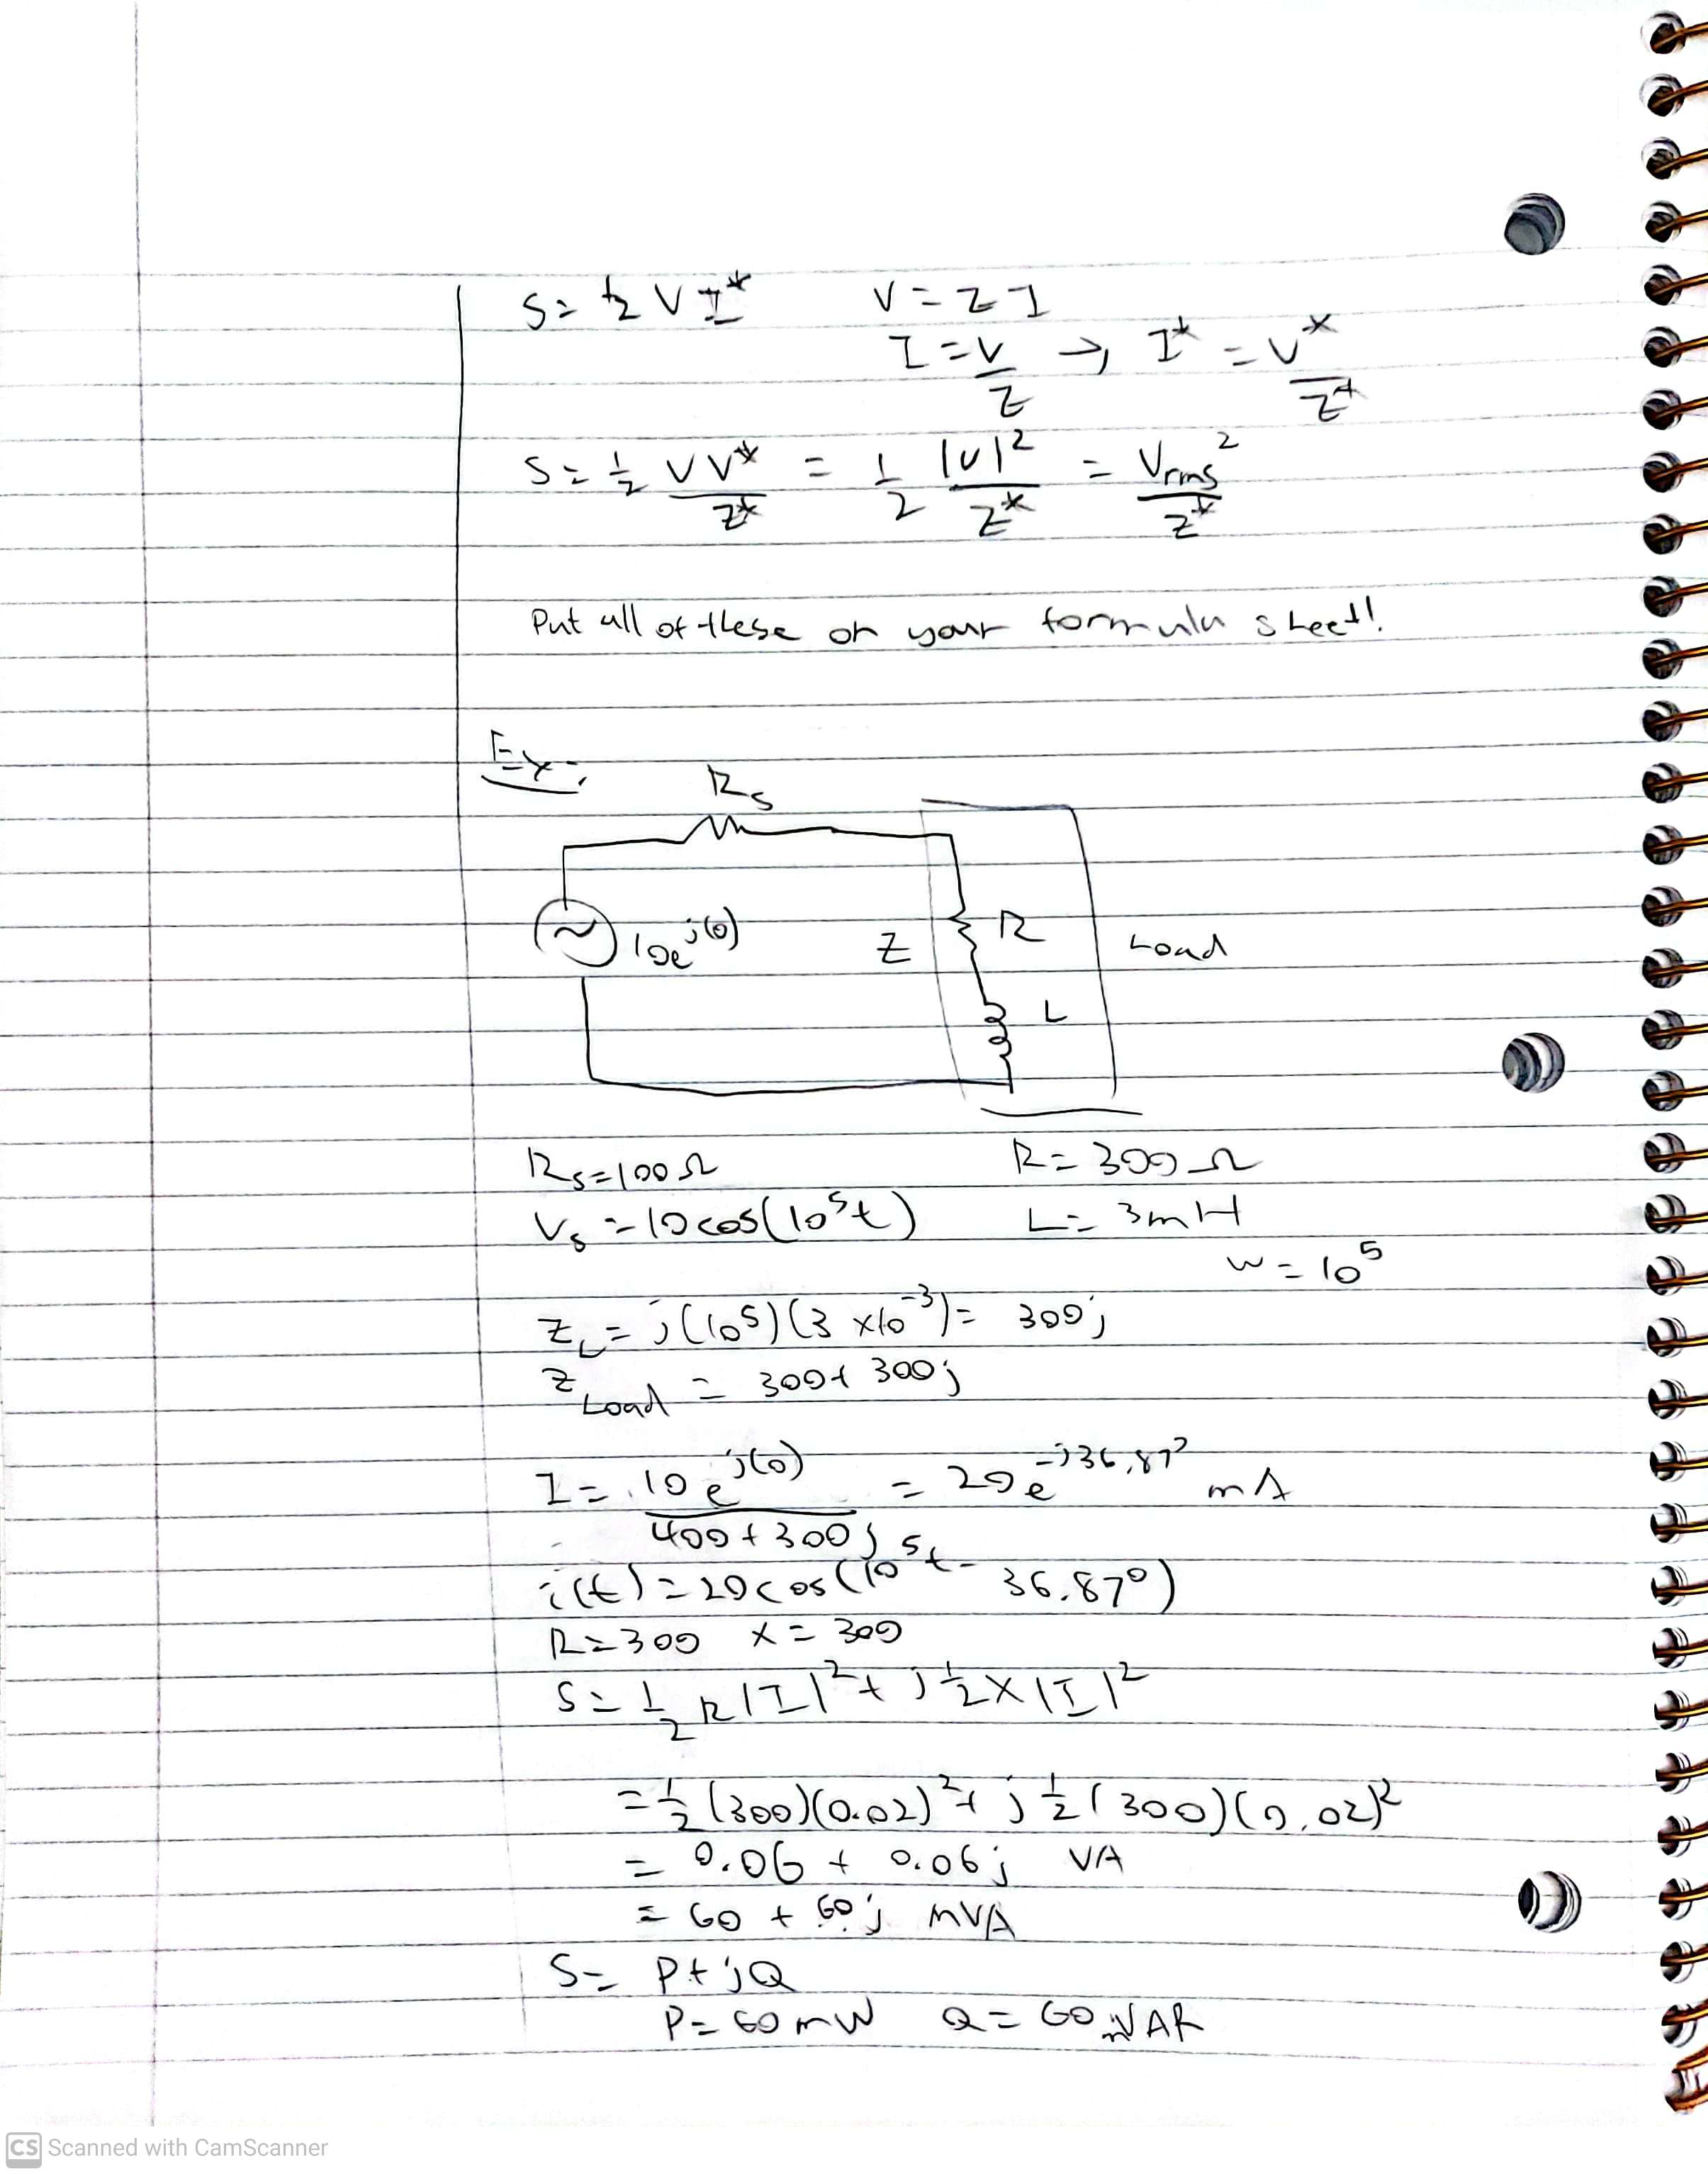 S = ½ V I*    V = Z I
I = V/Z → I* = V*/Z*
S = ½ VV*/Z* = ½ |V|²/Z* = Vrms²/Z*
Put all of these on your formula sheet!
Ex:
Rs
10e^j(0)    Z    R    Load
L
Rs = 100Ω    R = 300Ω
Vs = 10cos(10⁵t)    L = 3mH
w = 10⁵
Z_L = j(10⁵)(3 x10⁻³) = 300j
Z_Load = 300 + 300j
I = 10e^j(0)/(400 + 300j) = 20e^-j36.87° mA
i(t) = 20cos(10⁵t - 36.87°)
R = 300    X = 300
S = ½ R|I|² + j½X|I|²
= ½ (300)(0.02)² + j ½ (300)(0.02)²
= 0.06 + 0.06j VA
= 60 + 60j mVA
S = P + jQ
P = 60 mW    Q = 60 mVAR
CS Scanned with CamScanner